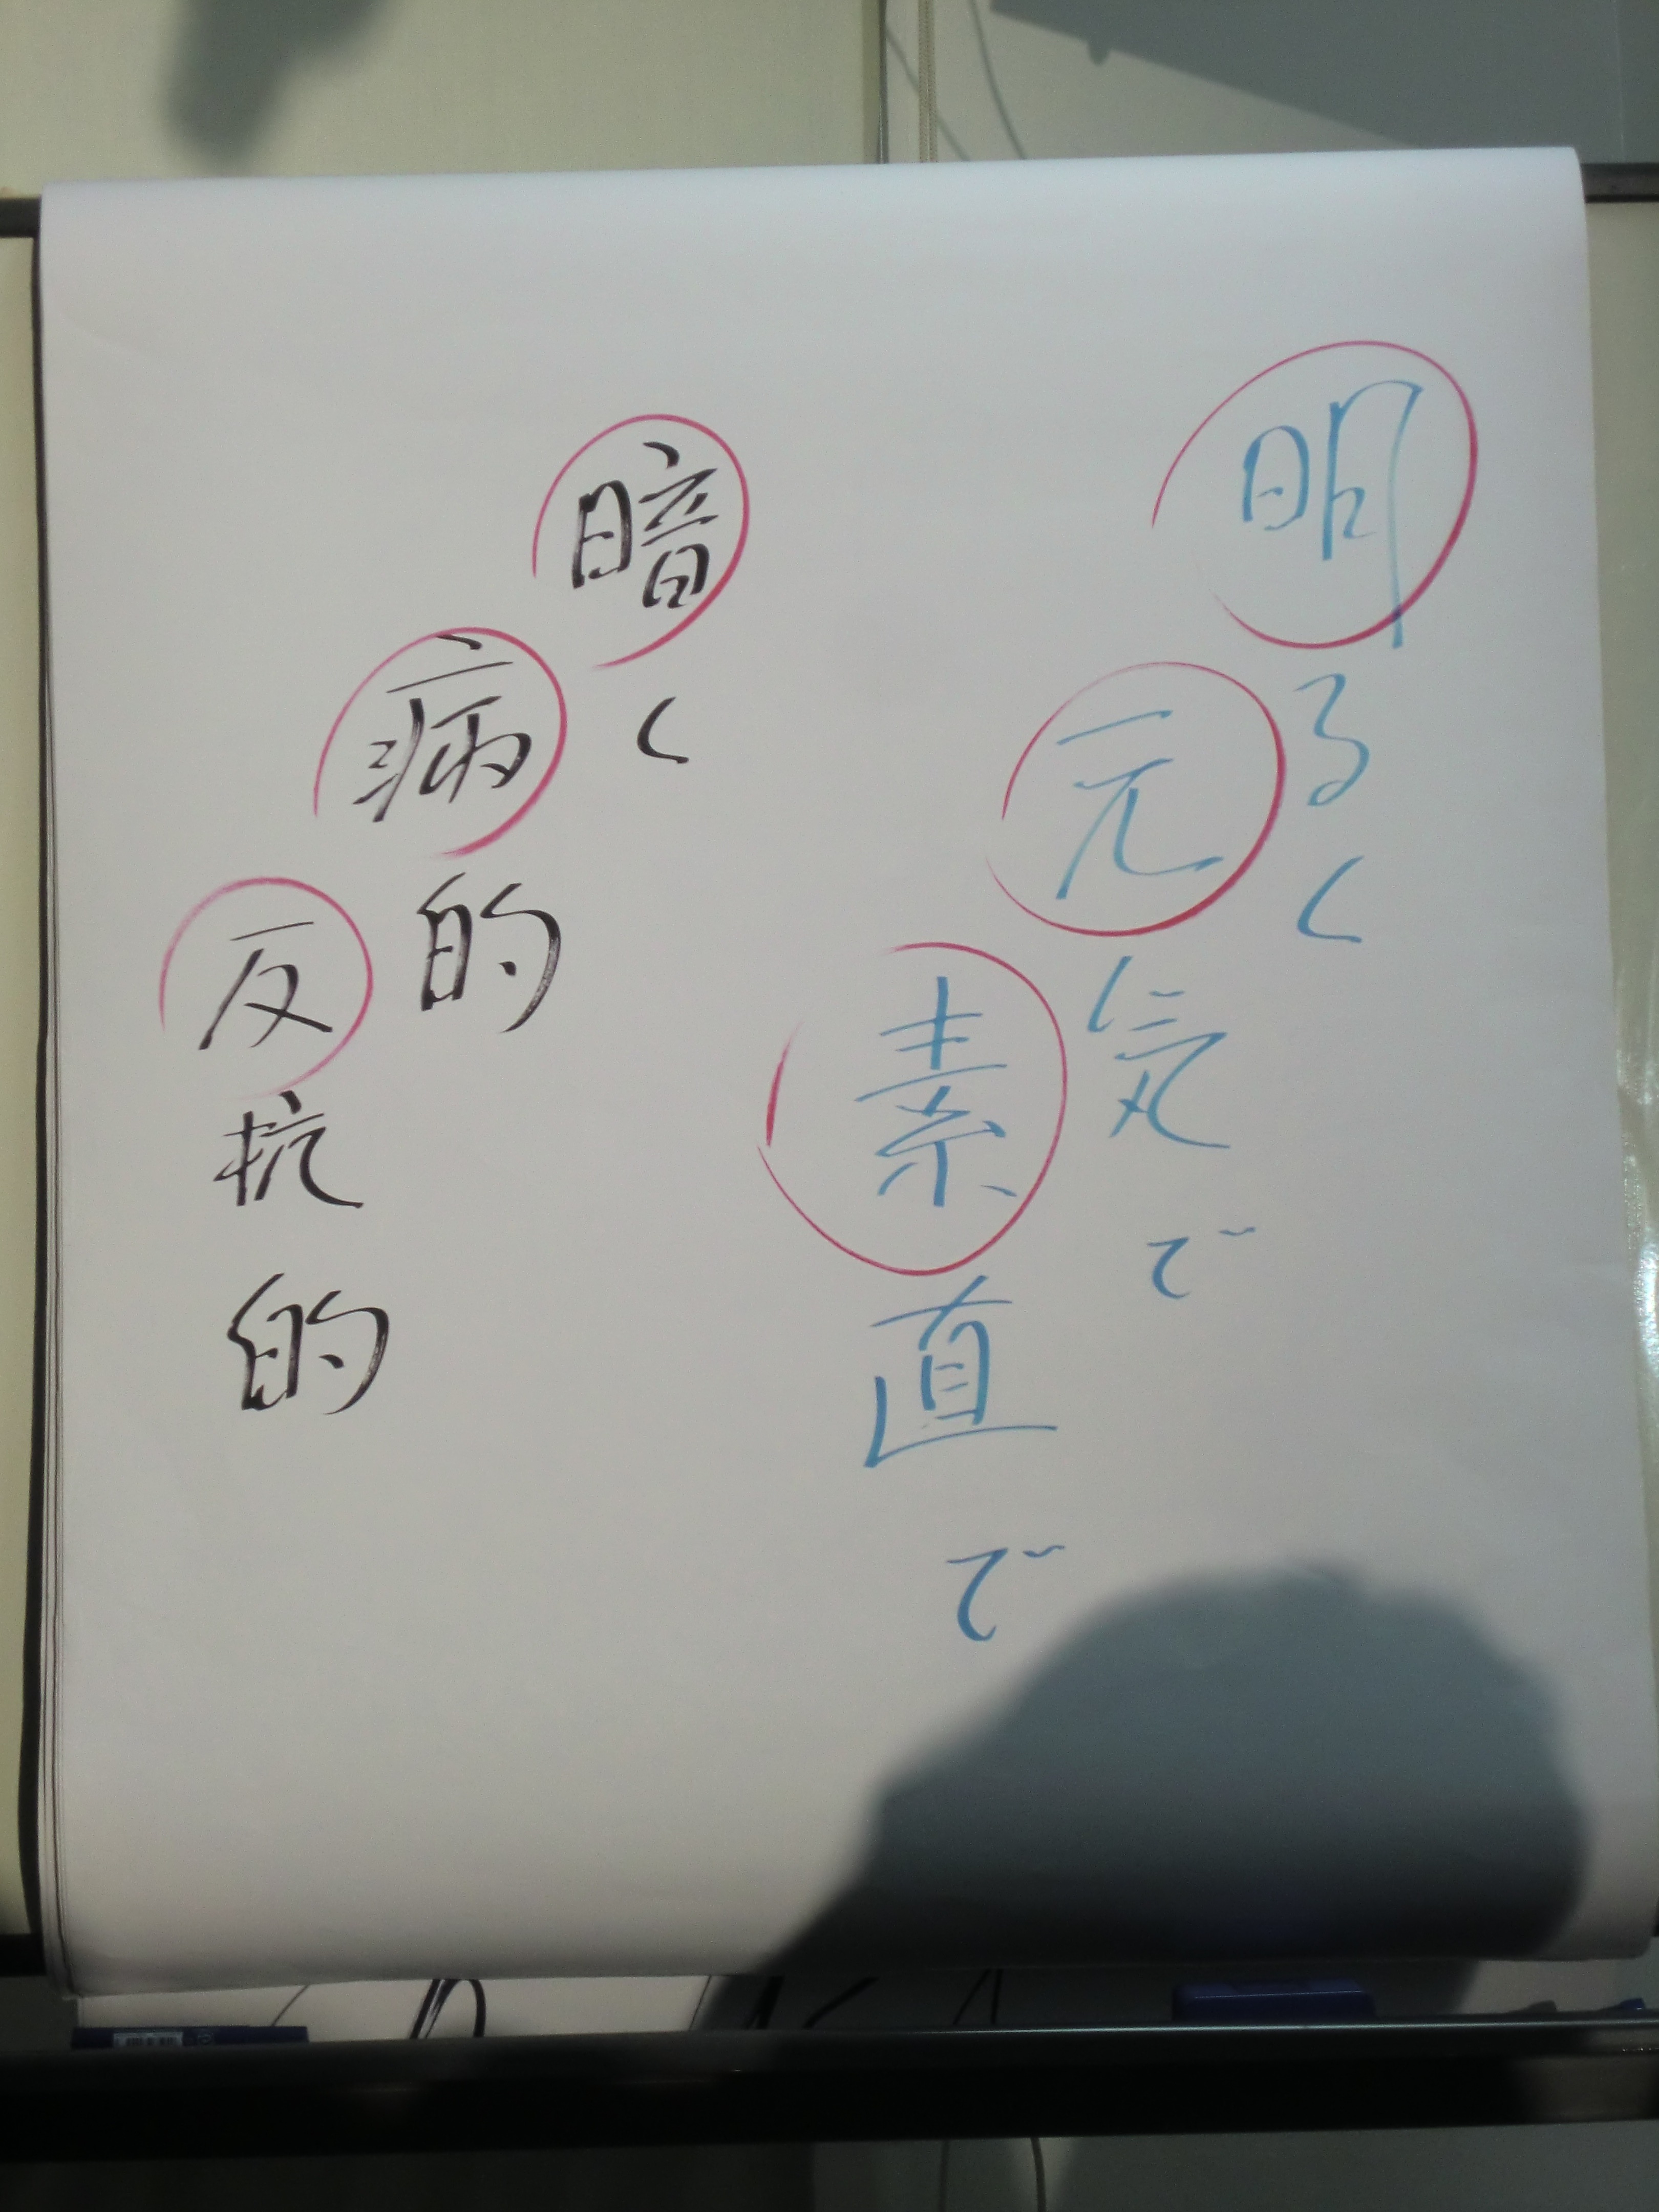 明るく
元気で
素直で
暗く
病的
反抗的